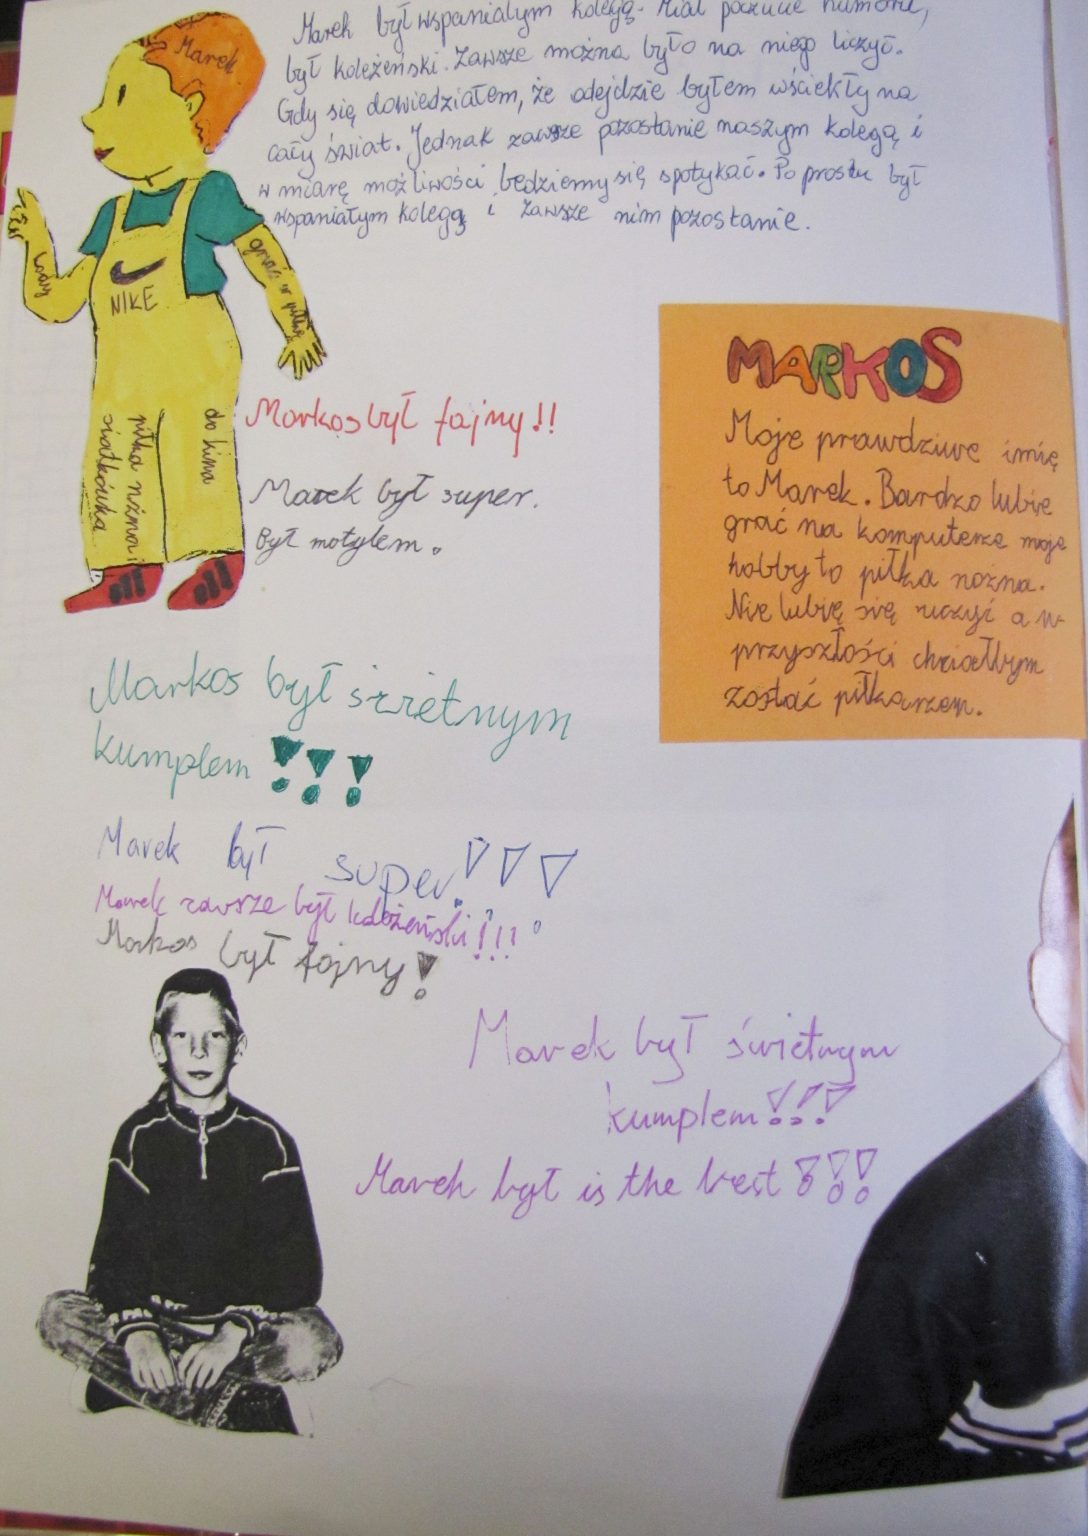 Marek był wspaniałym kolegą. Miał poczucie humoru,
był koleżeński. Zawsze można było na niego liczyć.
Gdy się dowiedziałem, że odejdzie byłem wściekły na
cały świat. Jednak zawsze pozostanie naszym kolegą i
w miarę możliwości będziemy się spotykać. Po prostu był
wspaniałym kolegą i zawsze nim pozostanie.
Marek
grać w piłkę
NIKE
do kina
piłka nożna i
siatkówka
Markos był fajny!!
Marek był super.
Był motylem.
MARKOS
Moje prawdziwe imię
to Marek. Bardzo lubię
grać na komputerze moje
hobby to piłka nożna.
Nie lubię się uczyć a w
przyszłości chciałbym
zostać piłkarzem.
Markos był świetnym
kumplem !!!
Marek był super!!!
Marek zawsze był koleżeński!!!
Markos był fajny!
Marek był świetnym
kumplem!!!
Marek był is the best !!!